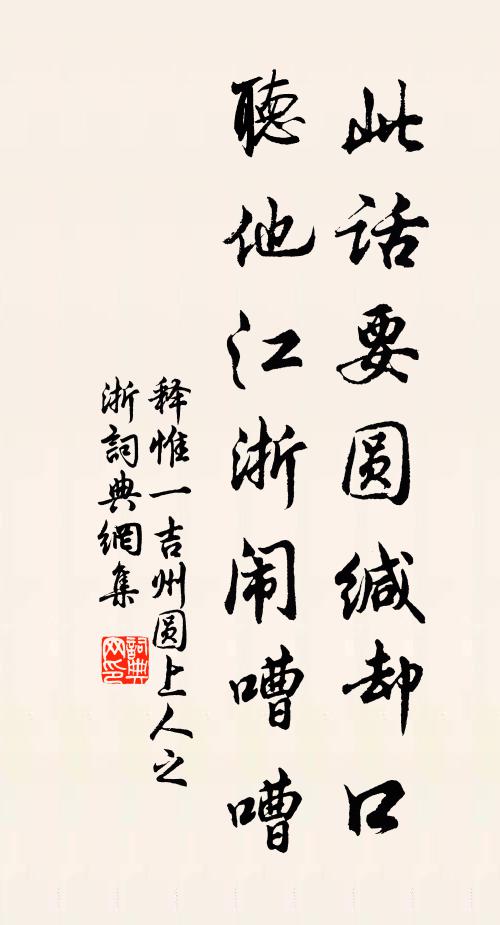 此话要圆缄却口
聽他江浙闹嘈嘈
释惟一吉州圆上人之
浙詞典網集
詞典
网印